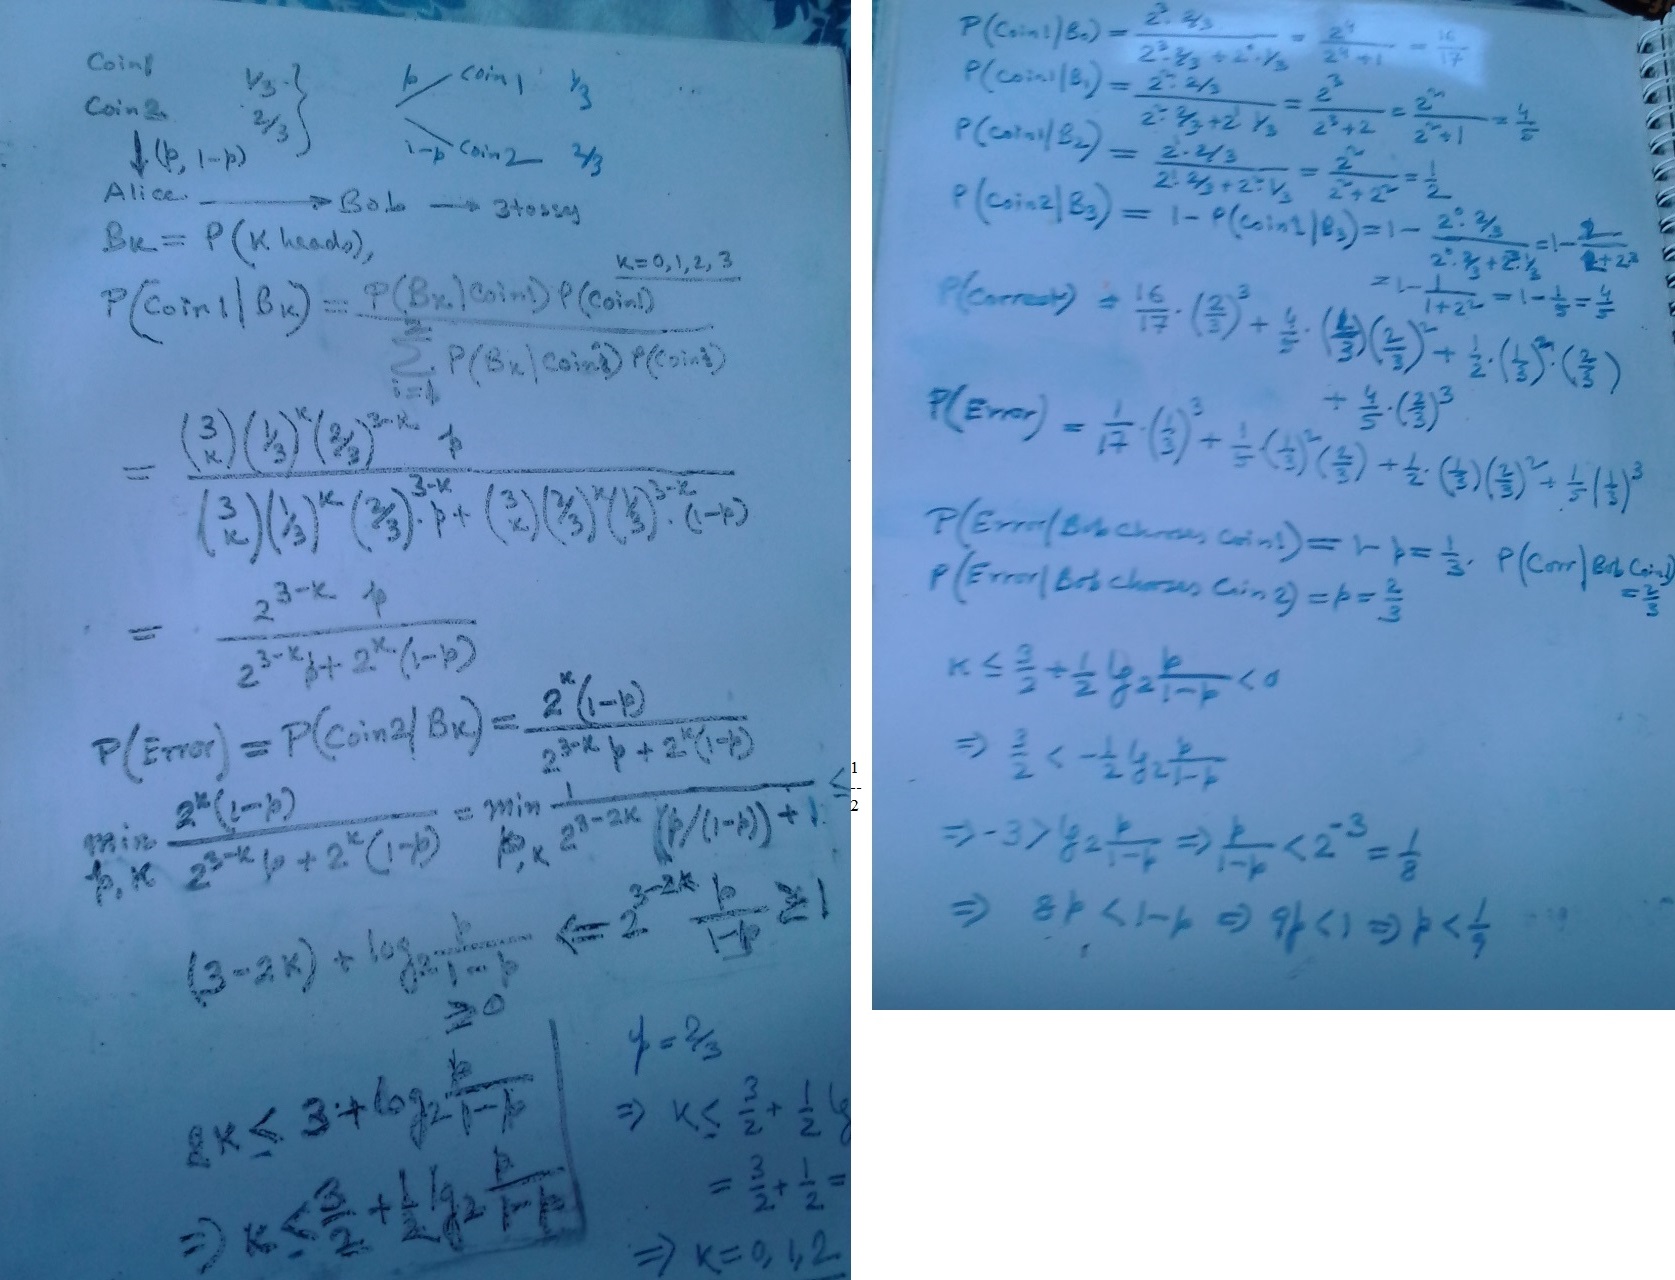 Coin1 1/3
Coin2 2/3
p coin1 1/3
1-p coin2 2/3
↓(p, 1-p)
Alice → Bob → 3 tosses
Bk = P(K heads),
k=0,1,2,3
P(Coin1|Bk) = P(Bk|Coin1) P(Coin1) / Σ i=1 2 P(Bk|Coin i) P(Coin i)
= (3 k)(1/3)^k (2/3)^3-k p / (3 k)(1/3)^k (2/3)^3-k · p + (3 k)(2/3)^k (1/3)^3-k · (1-p)
= 2^3-k p / 2^3-k p + 2^k (1-p)
P(Error) = P(Coin2|Bk) = 2^k (1-p) / 2^3-k p + 2^k (1-p)
min p,k 2^k (1-p) / 2^3-k p + 2^k (1-p) = min p,k 1 / 2^3-2k (p/(1-p)) + 1 ≤ 1 -- 2
(3-2k) + log2 p/1-p ≥ 0 ⇐ 2^3-2k p/1-p ≥ 1
2k ≤ 3 + log2 p/1-p
⇒ k ≤ 3/2 + 1/2 lg2 p/1-p
p = 2/3
⇒ k ≤ 3/2 + 1/2 lg
= 3/2 + 1/2 =
⇒ k = 0, 1, 2
P(Coin1|B0) = 2^3 · 2/3 / 2^3 · 2/3 + 2^0 · 1/3 = 2^4 / 2^4 + 1 = 16/17
P(Coin1|B1) = 2^2 · 2/3 / 2^2 · 2/3 + 2^1 1/3 = 2^3 / 2^3 + 2 = 2^2 / 2^2 + 1 = 4/5
P(Coin1|B2) = 2 · 2/3 / 2^1 · 2/3 + 2^2 · 1/3 = 2^2 / 2^2 + 2^2 = 1/2
P(Coin2|B3) = 1 - P(Coin1|B3) = 1 - 2^0 · 2/3 / 2^0 · 2/3 + 2^3 · 1/3 = 1 - 2 / 2 + 2^3
= 1 - 1 / 1 + 2^2 = 1 - 1/5 = 4/5
P(Correct) = 16/17 · (2/3)^3 + 4/5 · (1/3)(2/3)^2 + 1/2 · (1/3)^2 · (2/3)
+ 4/5 · (2/3)^3
P(Error) = 1/17 · (1/3)^3 + 1/5 · (1/3)^2 (2/3) + 1/2 · (1/3)(2/3)^2 + 1/5 (1/3)^3
P(Error|Bob chooses Coin1) = 1 - p = 1/3. P(Corr|Bob Coin1) = 2/3
P(Error|Bob chooses Coin2) = p = 2/3
k ≤ 3/2 + 1/2 lg2 p/1-p < 0
⇒ 3/2 < -1/2 lg2 p/1-p
⇒ -3 > lg2 p/1-p ⇒ p/1-p < 2^-3 = 1/8
⇒ 8p < 1-p ⇒ 9p < 1 ⇒ p < 1/9